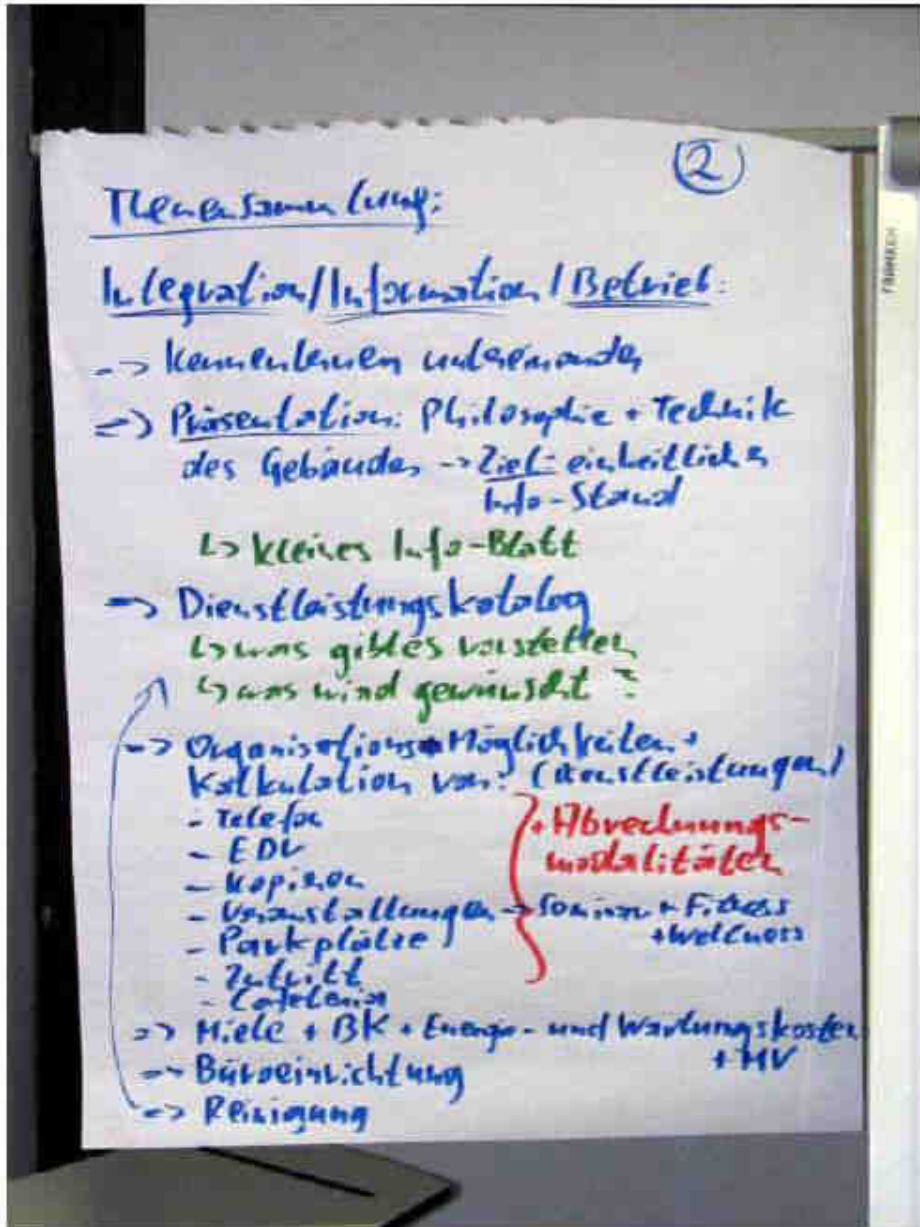 ②
Themensammlung:
Integration/Information/Betrieb:
-> Kennenlernen untereinander
=> Präsentation: Philosophie + Technik
des Gebäudes -> Ziel: einheitlicher
Info-Stand
↳ kleines Info-Blatt
=> Dienstleistungskatalog
↳ was gibt es vorstellen
↳ was wird gewünscht?
-> Organisations-Möglichkeiten +
Kalkulation von: (Dienstleistungen)
- Telefon
- EDV
- Kopieren
- Veranstaltungen -> Seminar + Fitness
+ Wellness
- Parkplätze
- Zutritt
- Cafeteria
+ Abrechnungs-
modalitäten
=> Miete + BK + Energie- und Wartungskosten
+ MV
-> Büroeinrichtung
-> Reinigung
FRANKEN